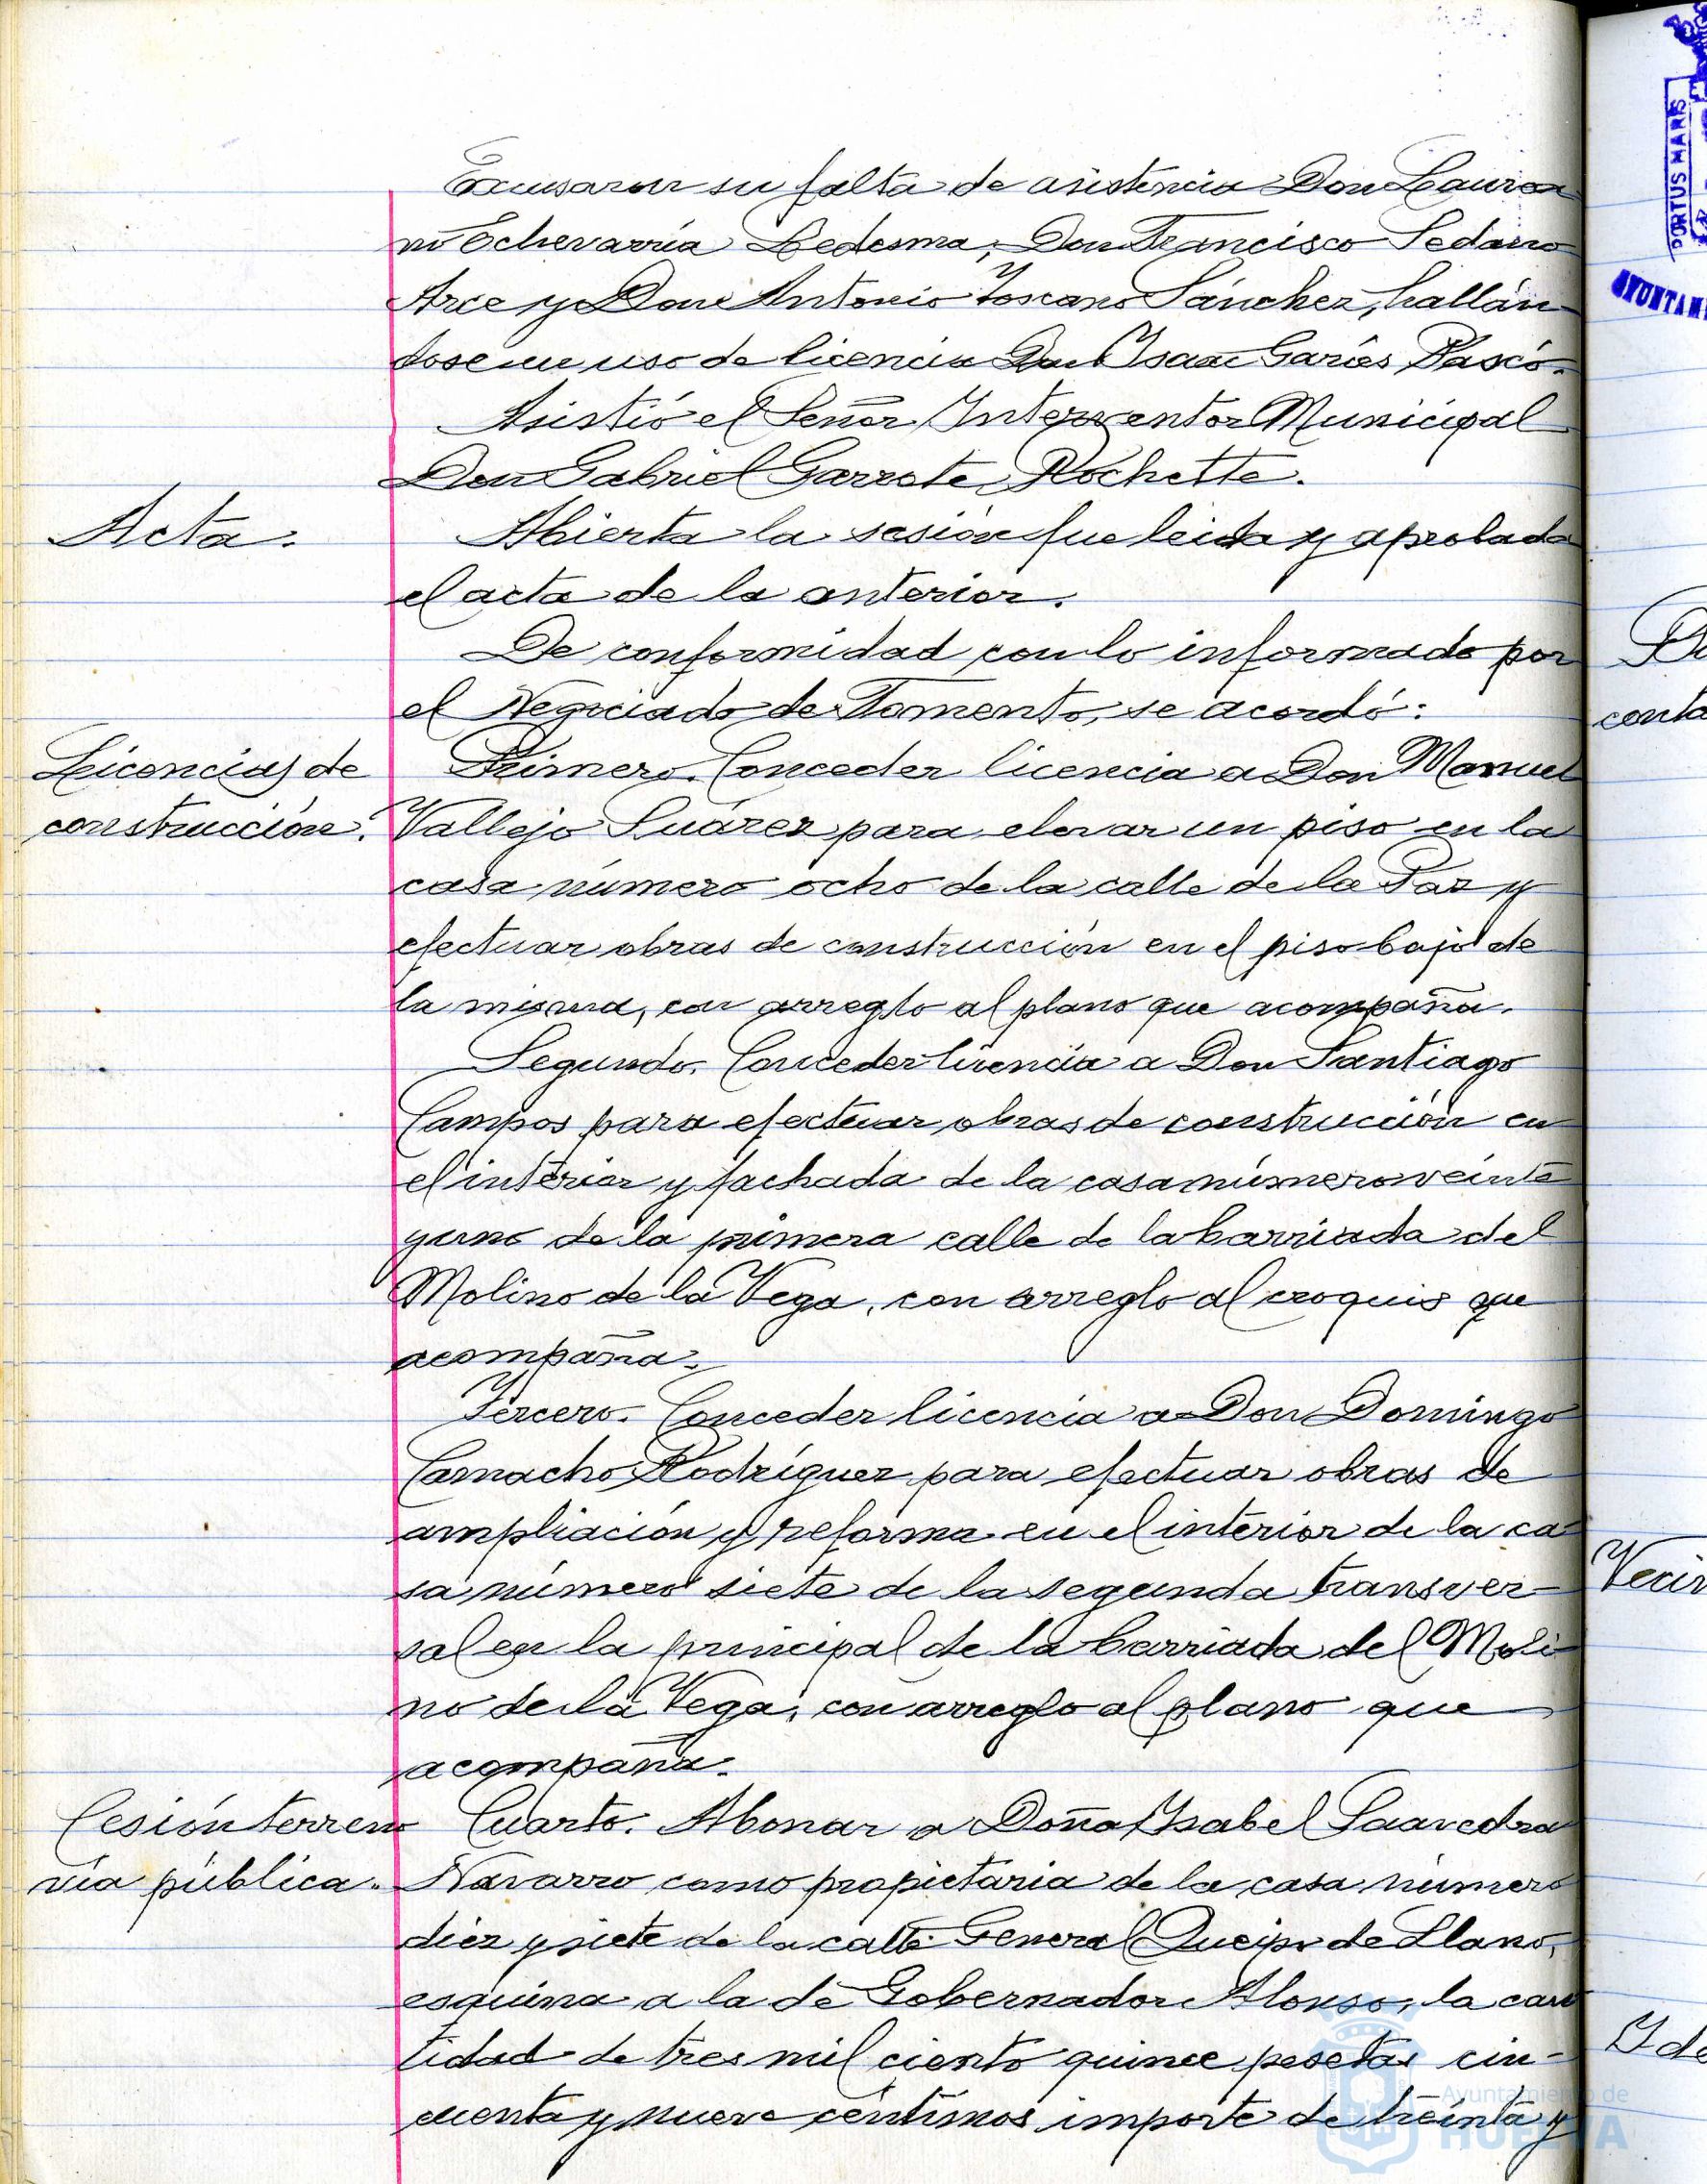 Excusaron su falta de asistencia Don Laurea
no Echevarría Ledesma, Don Francisco Sedano
Arce y Don Antonio Toscano Sánchez, hallán-
dose en uso de licencia Don Isaac Garcés Pascó.
Asistió el Señor Interventor Municipal
Don Gabriel Garrote Rochette.
Acta.
Abierta la sesión fue leida y aprobada
el acta de la anterior.
De conformidad con lo informado por
el Negociado de Fomento, se acordó:
Licencias de
construcción.
Primero. Conceder licencia a Don Manuel
Vallejo Suárez para elevar un piso en la
casa número ocho de la calle de la Paz y
efectuar obras de construcción en el piso bajo de
la misma, con arreglo al plano que acompaña.
Segundo. Conceder licencia a Don Santiago
Campos para efectuar obras de construcción en
el interior y fachada de la casa número veinte
y uno de la primera calle de la barriada del
Molino de la Vega, con arreglo al croquis que
acompaña.
Tercero. Conceder licencia a Don Domingo
Camacho Rodríguez para efectuar obras de
ampliación y reforma en el interior de la ca-
sa número siete de la segunda transver-
sal en la principal de la barriada del Moli-
no de la Vega, con arreglo al plano que
acompaña.
Cesión terreno
vía pública.
Cuarto. Abonar a Doña Isabel Saavedra
Navarro como propietaria de la casa número
diez y siete de la calle General Queipo de Llano,
esquina a la de Gobernador Alonso, la can-
tidad de tres mil ciento quince pesetas cin-
cuenta y nueve centimos importe de treinta y
PORTUS MARIS
AYUNTAM
conta
Vecin
Ide
Ayuntamiento de
HUELVA